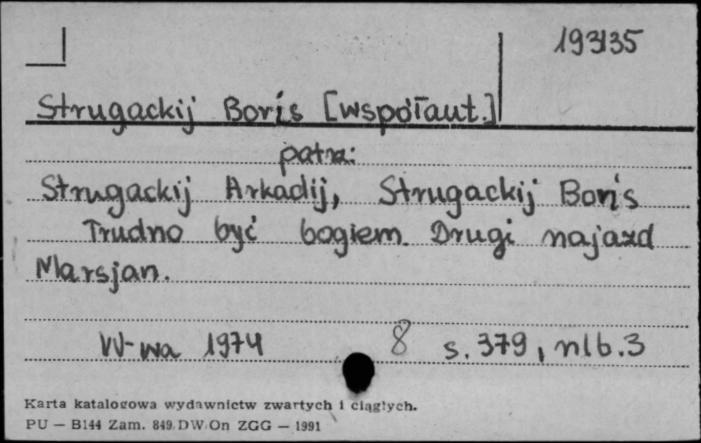 193135
Strugackij Boris [współaut.]
patrz:
Strugackij Arkadij, Strugackij Boris
Trudno być bogiem. Drugi najazd
Marsjan.
W-wa 1974 8 s. 379, nlb. 3
Karta katalogowa wydawnictw zwartych i ciągłych.
PU — B144 Zam. 849 DW On ZGG — 1991